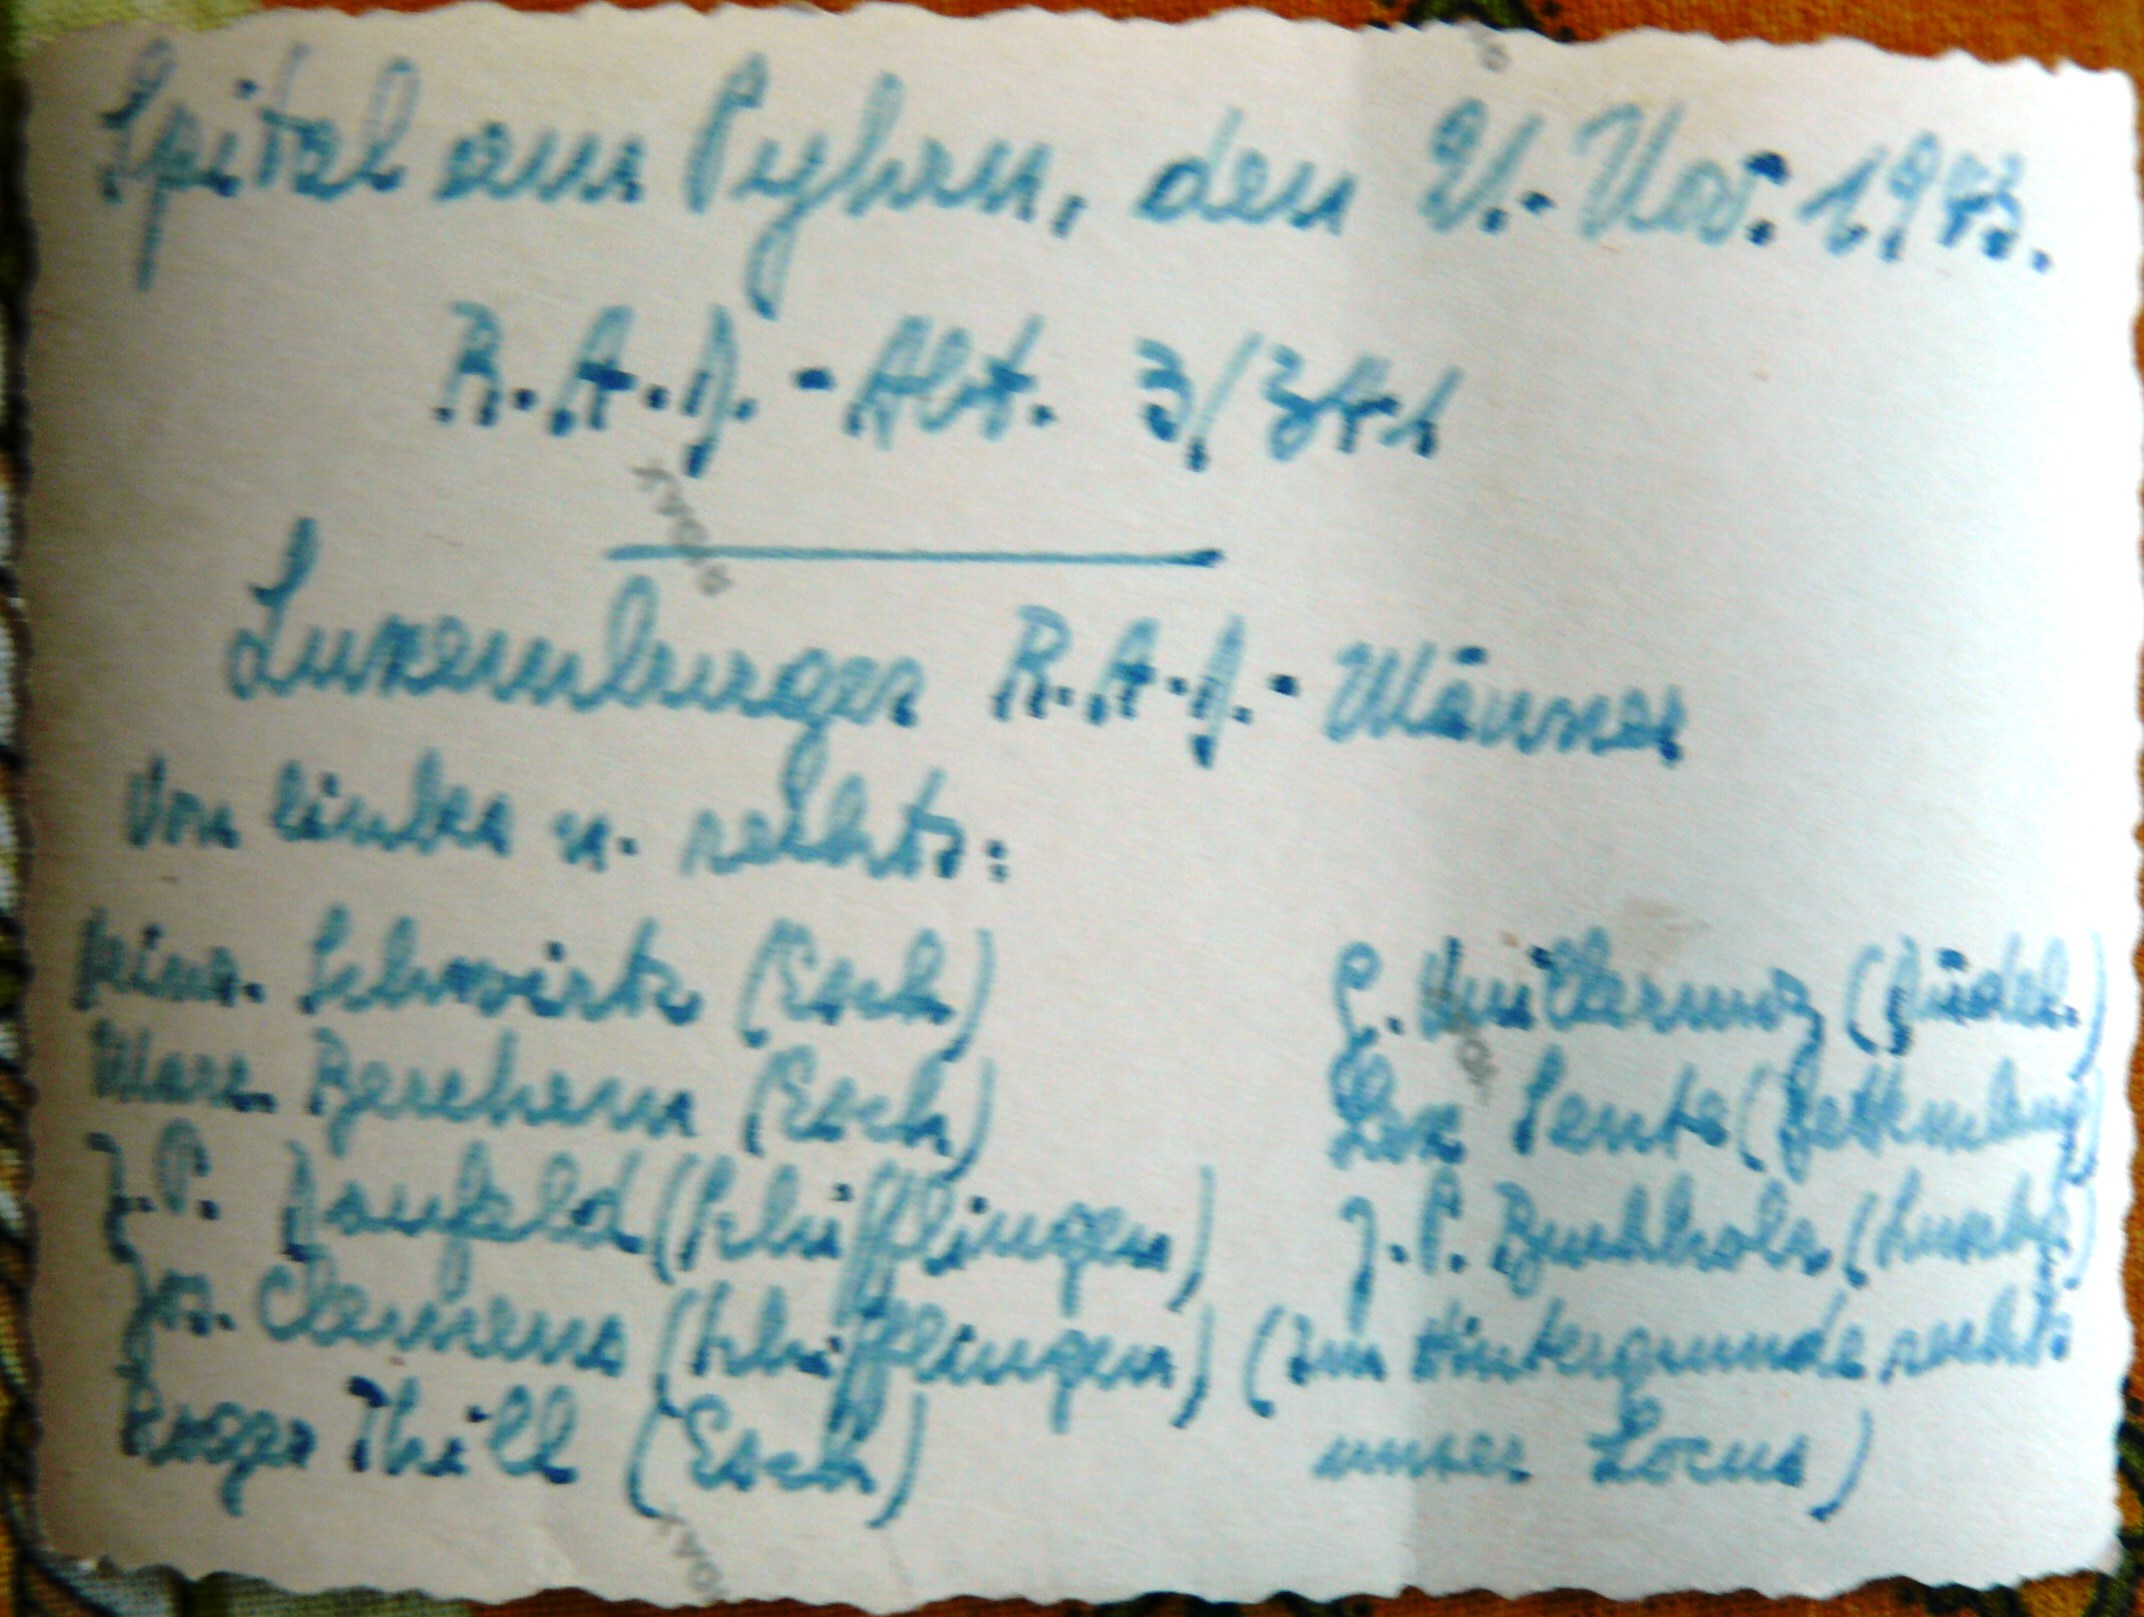 Spital am Pyhrn, den 21. Nov. 1943.
R.A.D. - Abt. 3/341
Luxemburger R.A.D. - Männer
Von links n. rechts:
Schwirtz (Esch)
Marc. Berchem (Esch)
J.P. Daufeld (Schifflingen)
Jos. Clemens (Schifflingen)
Roger Thill (Esch)
(Düdel.)
Lex (Bettemburg)
J.P. Buchholz (Luxbg)
(Im Hintergrunde rechts
unser Locus)